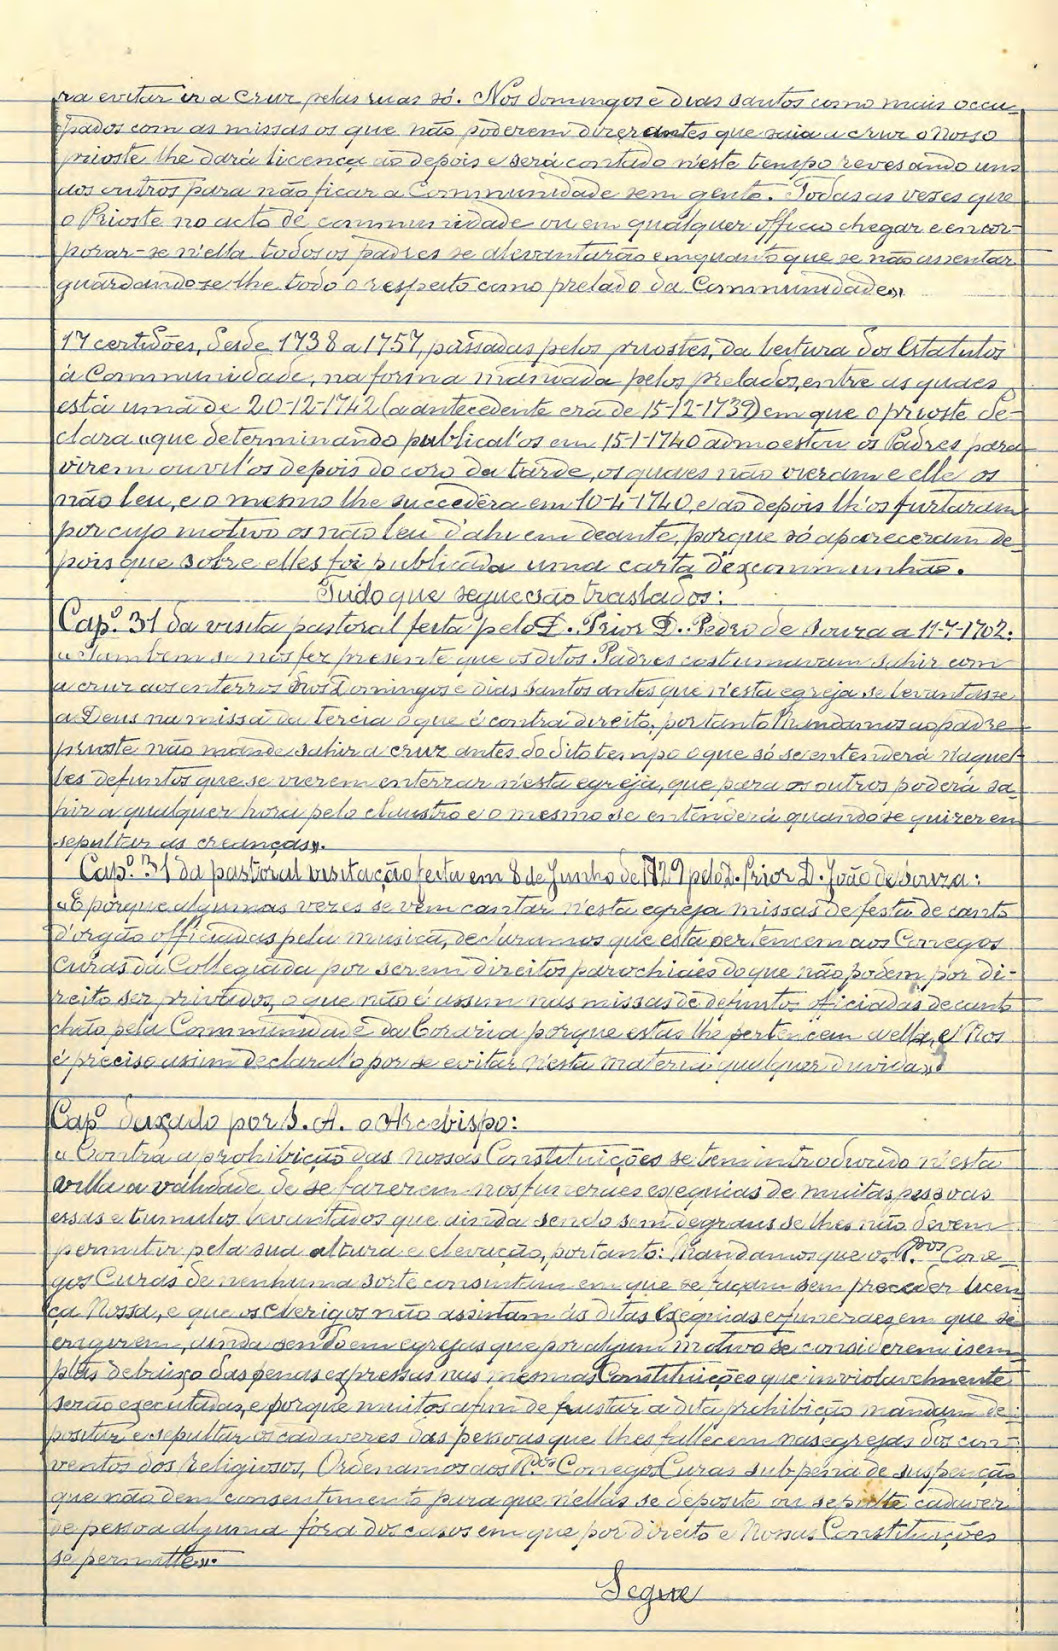 ra evitar ir a cruz pelas ruas só. Nos domingos e dias santos como mais occu-
pados com as missas os que não poderem dizer antes que saia a cruz o Nosso
prioste lhe dará licença ao depois e será contado n'este tempo revesando uns
aos outros para não ficar a Communidade sem gente. Todas as vezes que
o Prioste no acto de communidade ou em qualquer officio chegar e encor-
porar-se n'ella todos os padres se alevantarão emquanto que se não assentar
guardando-se lhe todo o respeito como prelado da Communidade»
17 certidões, desde 1738 a 1757, passadas pelos priostes, da leitura dos Estatutos
á Communidade, na forma mandada pelos prelados, entre as quaes
está uma de 20-12-1742 (a antecedente era de 15-12-1739) em que o prioste de-
clara «que determinando publical'os em 15-1-1740 admoestou os Padres para
virem ouvil'os depois do coro da tarde, os quaes não vieram e elle os
não leu, e o mesmo lhe succedêra em 10-4-1740, e ao depois lh'os furtaram
por cujo motivo os não leu d'ahi em deante, porque só apareceram de-
pois que sobre elles foi publicada uma carta d'excommunhão.
Tudo que segue são traslados:
Cap.º 31 da visita pastoral feita pelo D. Prior D. Pedro de Souza a 11-7-1702:
«Tambem se nos fez presente que os ditos Padres costumavam sahir com
a cruz aos enterros nos Domingos e dias santos antes que n'esta egreja se levantasse
a Deus na missa da tercia o que é contra direito, portanto Mandamos ao padre
prioste não mande sahir a cruz antes do dito tempo o que só se entenderá n'aquel-
les defuntos que se vierem enterrar n'esta egreja, que para os outros poderá sa-
hir a qualquer hora pelo claustro e o mesmo se entenderá quando se quizerem
sepultar as creanças».
Cap.º 31 da pastoral visitação feita em 8 de Junho de 1729 pelo D. Prior D. João de Souza:
«E porque algumas vezes se vem cantar n'esta egreja missas de festa de canto
d'orgão officiadas pela musica, declaramos que esta pertencem aos Conegos
Curas da Collegiada por serem direitos parochiaes do que não podem por di-
reito ser privados, o que não é assim nas missas de defuntos oficiadas de canto
chão pela Communidade da Coraria porque estas lhe pertencem a ella, e Nos
é preciso assim declaral'o por se evitar n'esta materia qualquer duvida»
Cap.º deixado por S. A. o Arcebispo:
«Contra a prohibição das nossas Constituições se tem introduzido n'esta
villa a validade de se fazerem nos funeraes exequias de muitas pessoas
essas e tumulos levantados que ainda sendo sem degraus se lhes não devem
permittir pela sua altura e elevação, portanto: Mandamos que os R.dos Cone-
gos Curas de nenhuma sorte consintam em que se façam sem preceder licen-
ça Nossa, e que os clerigos não assistam ás ditas Exequias e funeraes em que se
erigirem, ainda sendo em egrejas que por algum motivo se considerem isem-
ptas debaixo das penas expressas nas mesmas Constituições que inviolavelmente
serão executadas, e porque muitos afim de frustar a dita prohibição mandam de-
positar e sepultar os cadaveres das pessoas que lhes fallecem nas egrejas dos con-
ventos dos Religiosos, Ordenamos aos R.dos Conegos Curas sub pena de suspenção
que não dem consentimento para que n'ellas se deposite ou sepulte cadaver
de pessoa alguma fóra dos casos em que por direito e Nossas Constituições
se permitte».
Segue